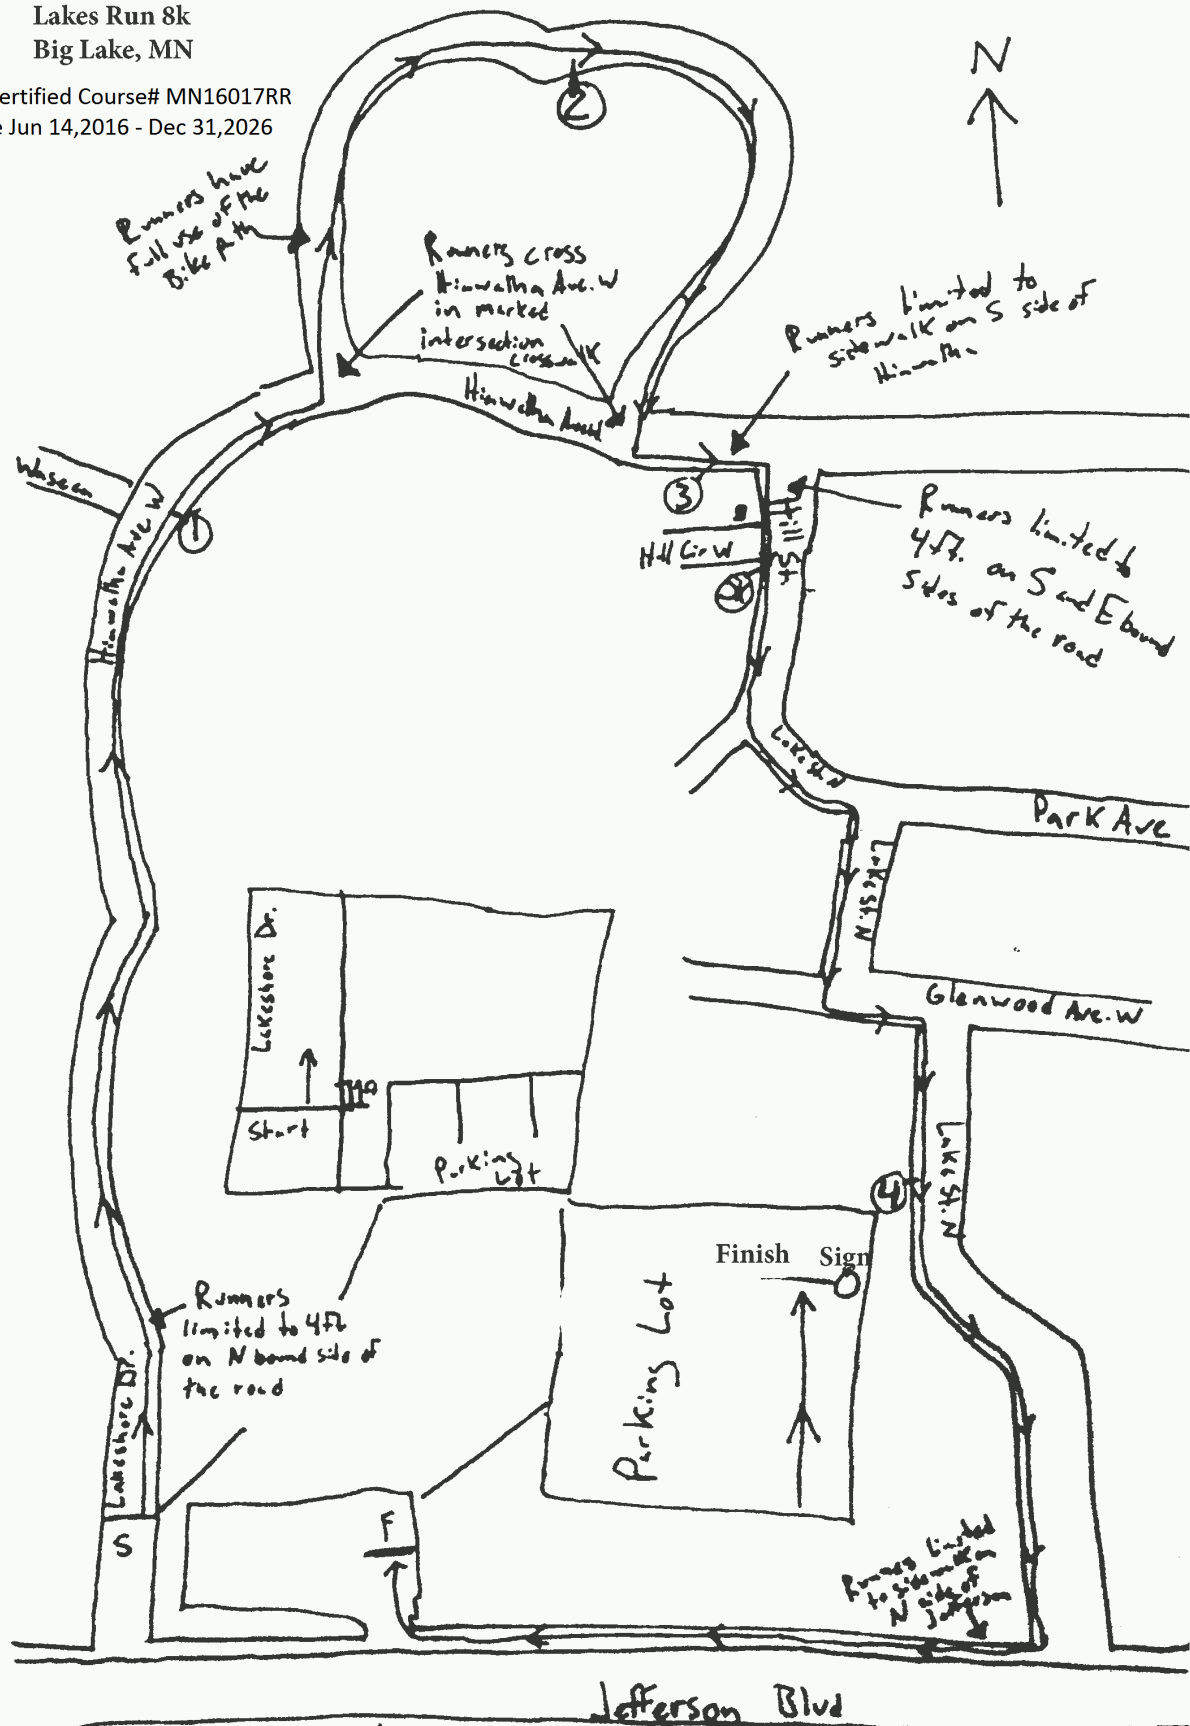 Lakes Run 8k
Big Lake, MN
ertified Course# MN16017RR
e Jun 14,2016 - Dec 31,2026
N
2
Runners have
full use of the
Bike path
Runners cross
Hiawatha Ave. W
in market
intersection
crosswalk
Runners limited to
sidewalk on S side of
Hiawatha
Hiawatha
Waseca
Hiawatha Ave W
1
3
Hill Cir W
Hill St
Runners limited to
4ft. on S and E bound
sides of the road
Lake St N
Park Ave
Lake St. N
Glenwood Ave. W
Lakeshore Dr.
Start
Parking
Lot
Lake St. N
4
Finish Sign
Parking Lot
Runners
limited to 4ft
on N bound side of
the road
Lakeshore Dr.
S
F
Runners limited
to sidewalk on
N side of
Jefferson
Jefferson Blvd